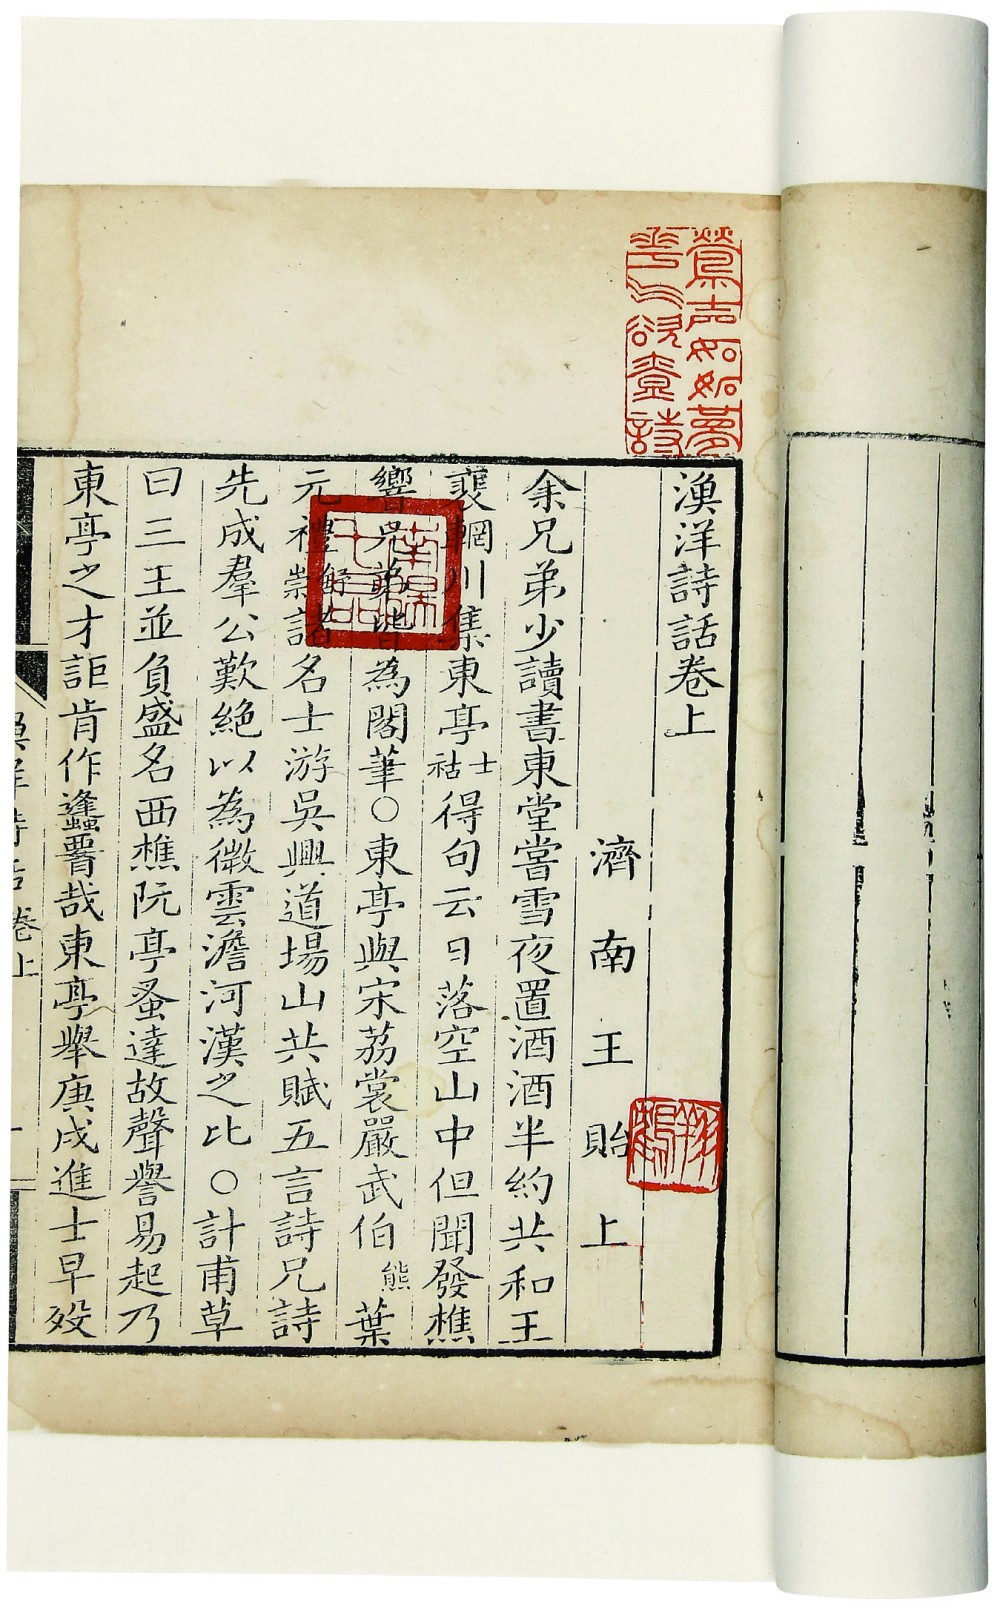 漁洋詩話卷上
濟南王貽上
余兄弟少讀書東堂嘗雪夜置酒酒半約共和王
裴輞川集東亭士祜得句云日落空山中但聞發樵
響兄弟皆為閣筆○東亭與宋荔裳嚴武伯熊葉
元禮舒崇諸名士游吳興道場山共賦五言詩兄詩
先成羣公歎絕以為微雲澹河漢之比○計甫草
曰三王並負盛名西樵阮亭蚤達故聲譽易起乃
東亭之才詎肯作蠭䁥哉東亭舉庚戌進士早歿
漁洋詩話卷上
鶯聲如如夢